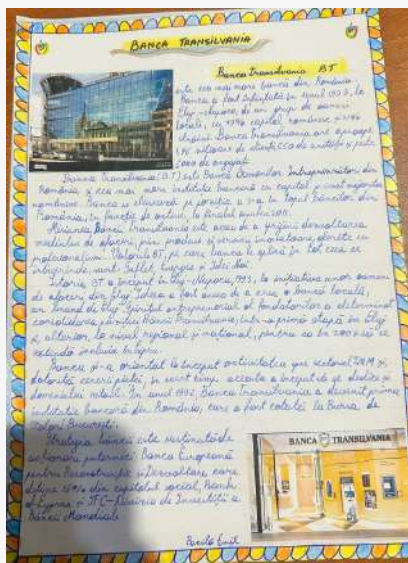 BANCA TRANSILVANIA
Banca Transilvania BT
este cea mai mare banca din România.
Banca a fost înființată în anul 1993, la
Cluj-Napoca, de un grup de oameni
locali, cu capital românesc
străin. Banca Transilvania are aproape
clienți
5000 de angajați
Banca Transilvania (BT) este Banca Oamenilor Întreprinzători din
România și cea mai mare instituție bancară cu capital majoritar
românesc. Banca se clasează pe poziția a în Topul Băncilor din
România, în funcție de active, la finalul
Misiunea Băncii Transilvania este aceea de a sprijini dezvoltarea
mediului de afaceri, prin produse și servicii inovatoare, oferite cu
profesionalism. Valorile BT, pe care banca le aplică în tot ceea ce
întreprinde, sunt: Suflet, Energie și Idei Noi
Istoria BT a început în Cluj-Napoca, 1993, la inițiativa unor oameni
de afaceri din Cluj. Ideea a fost aceea de a crea o bancă locală,
un brand de Cluj. Spiritul antreprenorial al fondatorilor a determinat
consolidarea poziției Băncii Transilvania, într-o primă etapă în Cluj
și, ulterior, la nivel regional și național, pentru ca în
extinde inclusiv în Cipru.
Banca și-a orientat la început activitatea spre sectorul IMM și,
datorită cererii pieței, în scurt timp aceasta a început să se dedice și
domeniului retail. În anul Banca Transilvania a devenit prima
instituție bancară din România, care a fost cotată la Bursa de
Valori București.
Strategia băncii este susținută de
acționarii puternici: Banca Europeană
pentru Reconstrucție și Dezvoltare care
deține din capitalul social, Bank
of Cyprus și IFC - Divizia de Investiții a
Băncii Mondiale
BANCA TRANSILVANIA
Emil